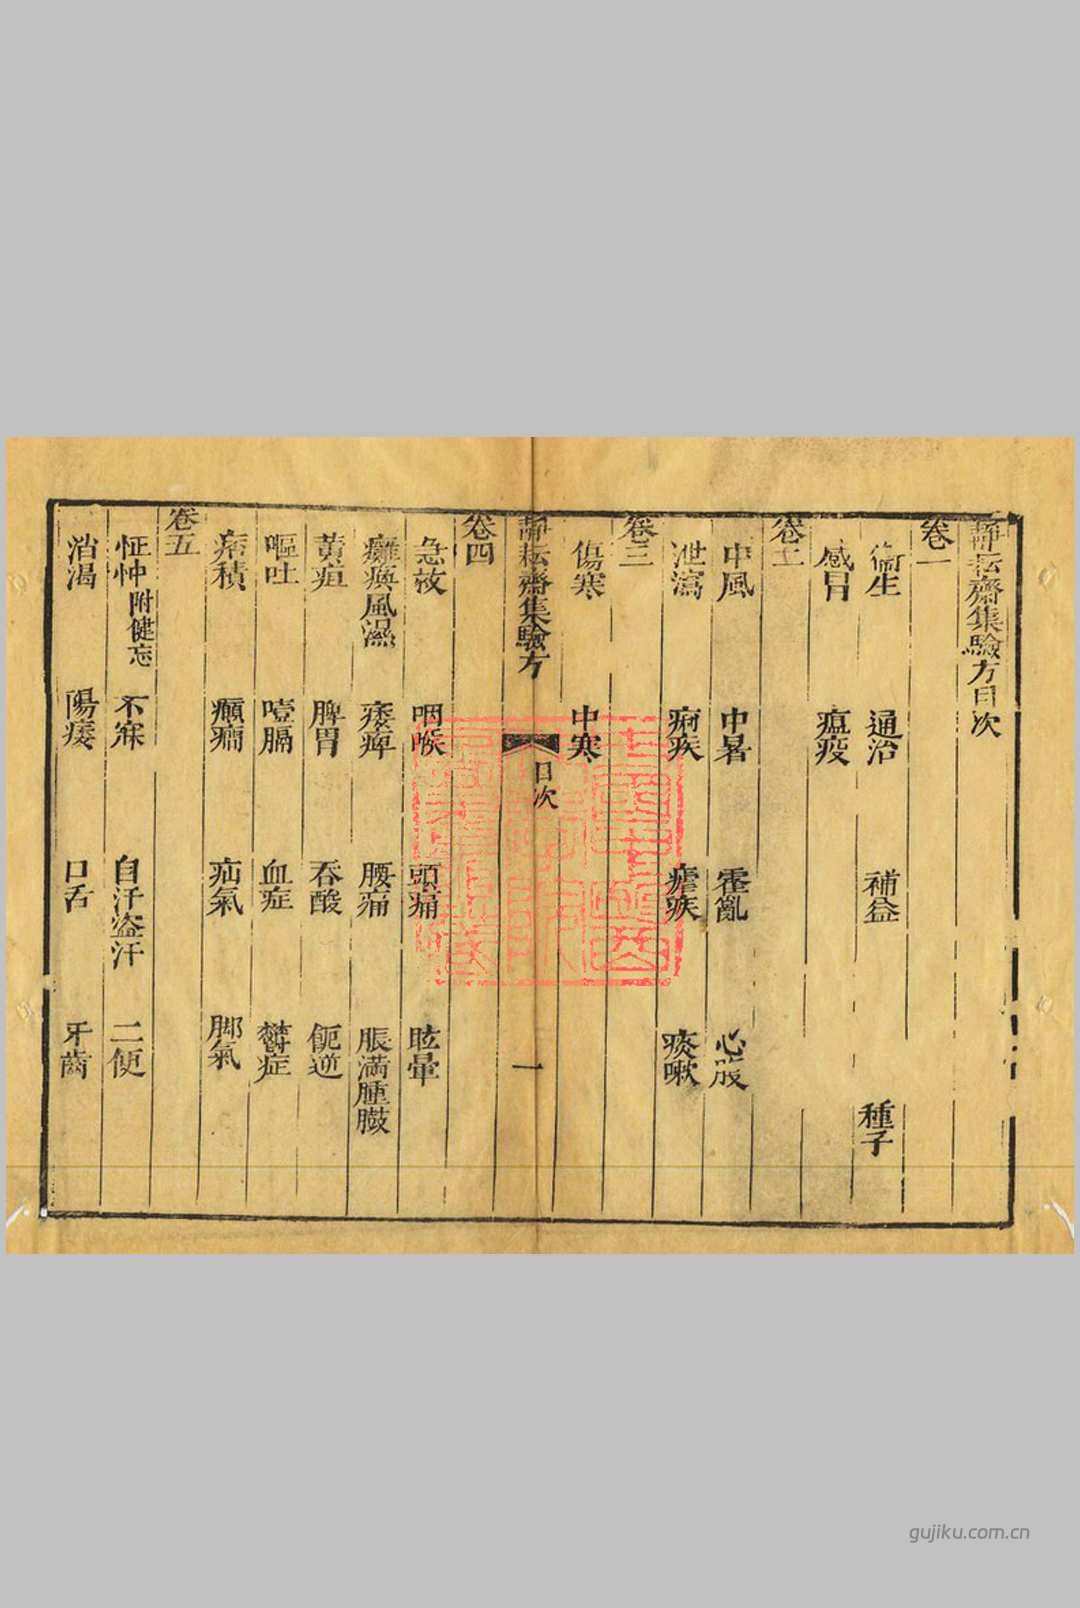 靜耘齋集驗方目次
卷一
衞生 通治 補益 種子
感冒 瘟疫
卷二
中風 中暑 霍亂 心腹
泄瀉 痢疾 瘧疾 痰嗽
卷三
傷寒 中寒
靜耘齋集驗方 目次 一
卷四
急救 咽喉 頭痛 眩暈
癱瘓風濕 痿痺 腰痛 脹滿腫臌
黃疸 脾胃 吞酸 呃逆
嘔吐 噎膈 血症 鬱症
痞積 癲癇 疝氣 脚氣
卷五
怔忡附健忘 不寐 自汗盜汗 二便
消渴 陽痿 口舌 牙齒
gujiku.com.cn